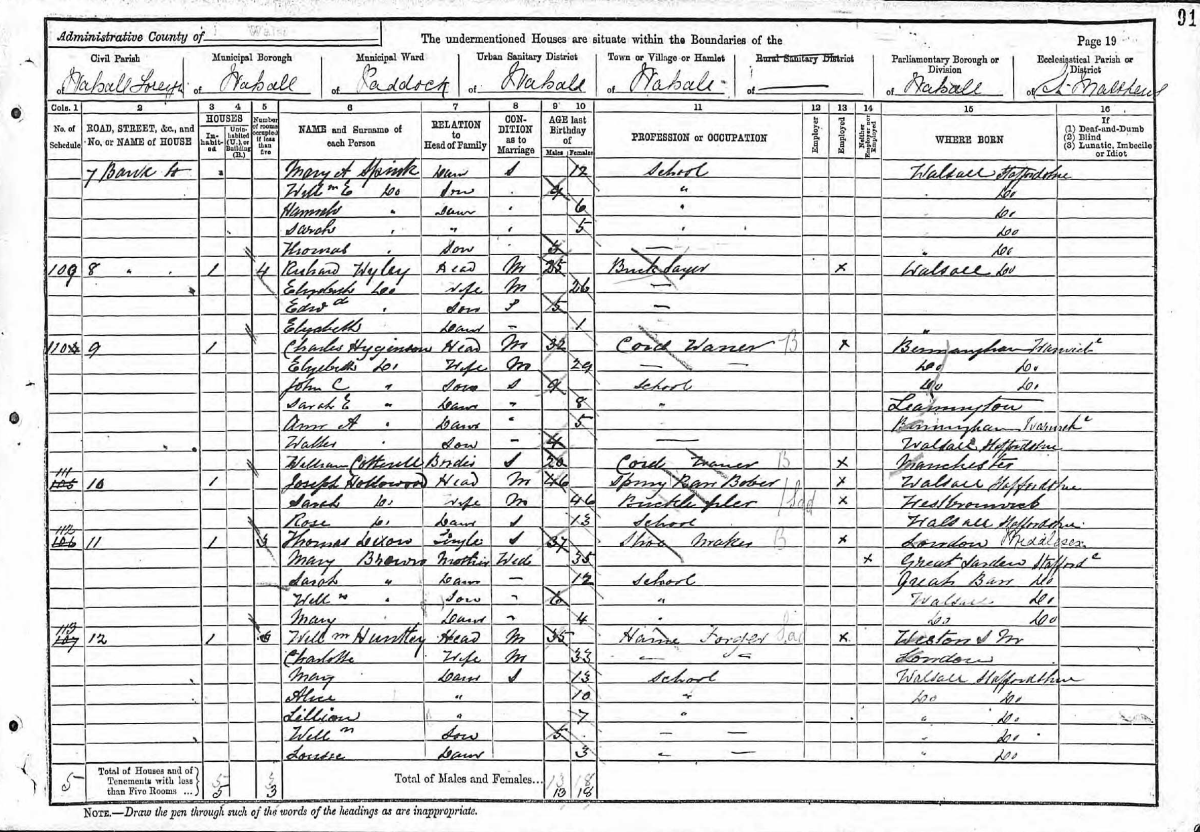 91
Administrative County of
The undermentioned Houses are situate within the Boundaries of the
Page 19
Civil Parish
Municipal Borough
Municipal Ward
Urban Sanitary District
Town or Village or Hamlet
Rural Sanitary District
Parliamentary Borough or Division
Ecclesiastical Parish or District
of Walsall Foreign of Walsall of Paddock of Walsall of Walsall of of Walsall of St Matthews
Cols. 1 2 3 4 5 6 7 8 9 10 11 12 13 14 15 16
No. of Schedule
ROAD, STREET, &c., and No. or NAME of HOUSE
HOUSES
Inhabited
Uninhabited (U.), or Building (B.)
Number of rooms occupied if less than five
NAME and Surname of each Person
RELATION to Head of Family
CONDITION as to Marriage
AGE last Birthday of
Males Females
PROFESSION or OCCUPATION
Employer
Employed
Neither Employer nor Employed
WHERE BORN
If
(1) Deaf-and-Dumb
(2) Blind
(3) Lunatic, Imbecile or Idiot
7 Bank St Mary A Spink Daur S 12 School Walsall Staffordshire
Willm E Do Son 9 " Do
Hannah " Daur 6 " Do
Sarah " " 5 Do
Thomas Son 3 — " Do
109 8 " 1 4 Richard Wyley Head M 25 Bricklayer x Walsall Do
Elizabeth Do Wife M 26 —
Edwd Son S 5 —
Elizabeth Daur – 1 "
110 9 1 Charles Hyginson Head M 32 Cord Waner B x Birmingham Warwick
Elizebeth Do Wife M 29 — — Do Do
John C " Son S 9 School Do Do
Sarah E " Daur " 8 " Leamington
Ann A " Daur " 5 Birmingham Warwick
Walter Son – 4 — Walsall Staffordshire
William Cotterell Border S 20 Cord Waner B x Manchester
111 105 10 1 Joseph Hollowood Head M 46 Spring Bar x Walsall Staffordshire
Sarah Do Wife M 46 Buckle filer x Westbromwich
Rose Do Daur S 13 School Walsall Staffordshire
112 106 11 1 3 Thomas Dixon Single S 37 Shoe Maker B x London Middlesex
Mary Brown Mother Wid 35 x Great Barr Stafford
Sarah " Daur – 12 School Great Barr Do
Willm " Son – 6 " Walsall Do
Mary Daur – 4 " Do Do
113 107 12 1 Willm Huntley Head M 35 Hame Forger x Weston S M
Charlotte Wife M 33 — — London
Mary Daur S 13 School Walsall Staffordshire
Alice " 10 " Do Do
Lillion " 7 " " Do
Willm Son 5 — — " Do
Louise Daur 3 — — " Do
5 Total of Houses and of Tenements with less than Five Rooms ... 5 3 Total of Males and Females... 13 18
NOTE.—Draw the pen through such of the words of the headings as are inappropriate.